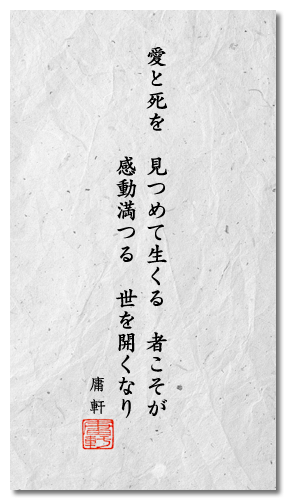 愛と死を　見つめて生くる　者こそが
感動満つる　世を開くなり
庸軒
庸軒